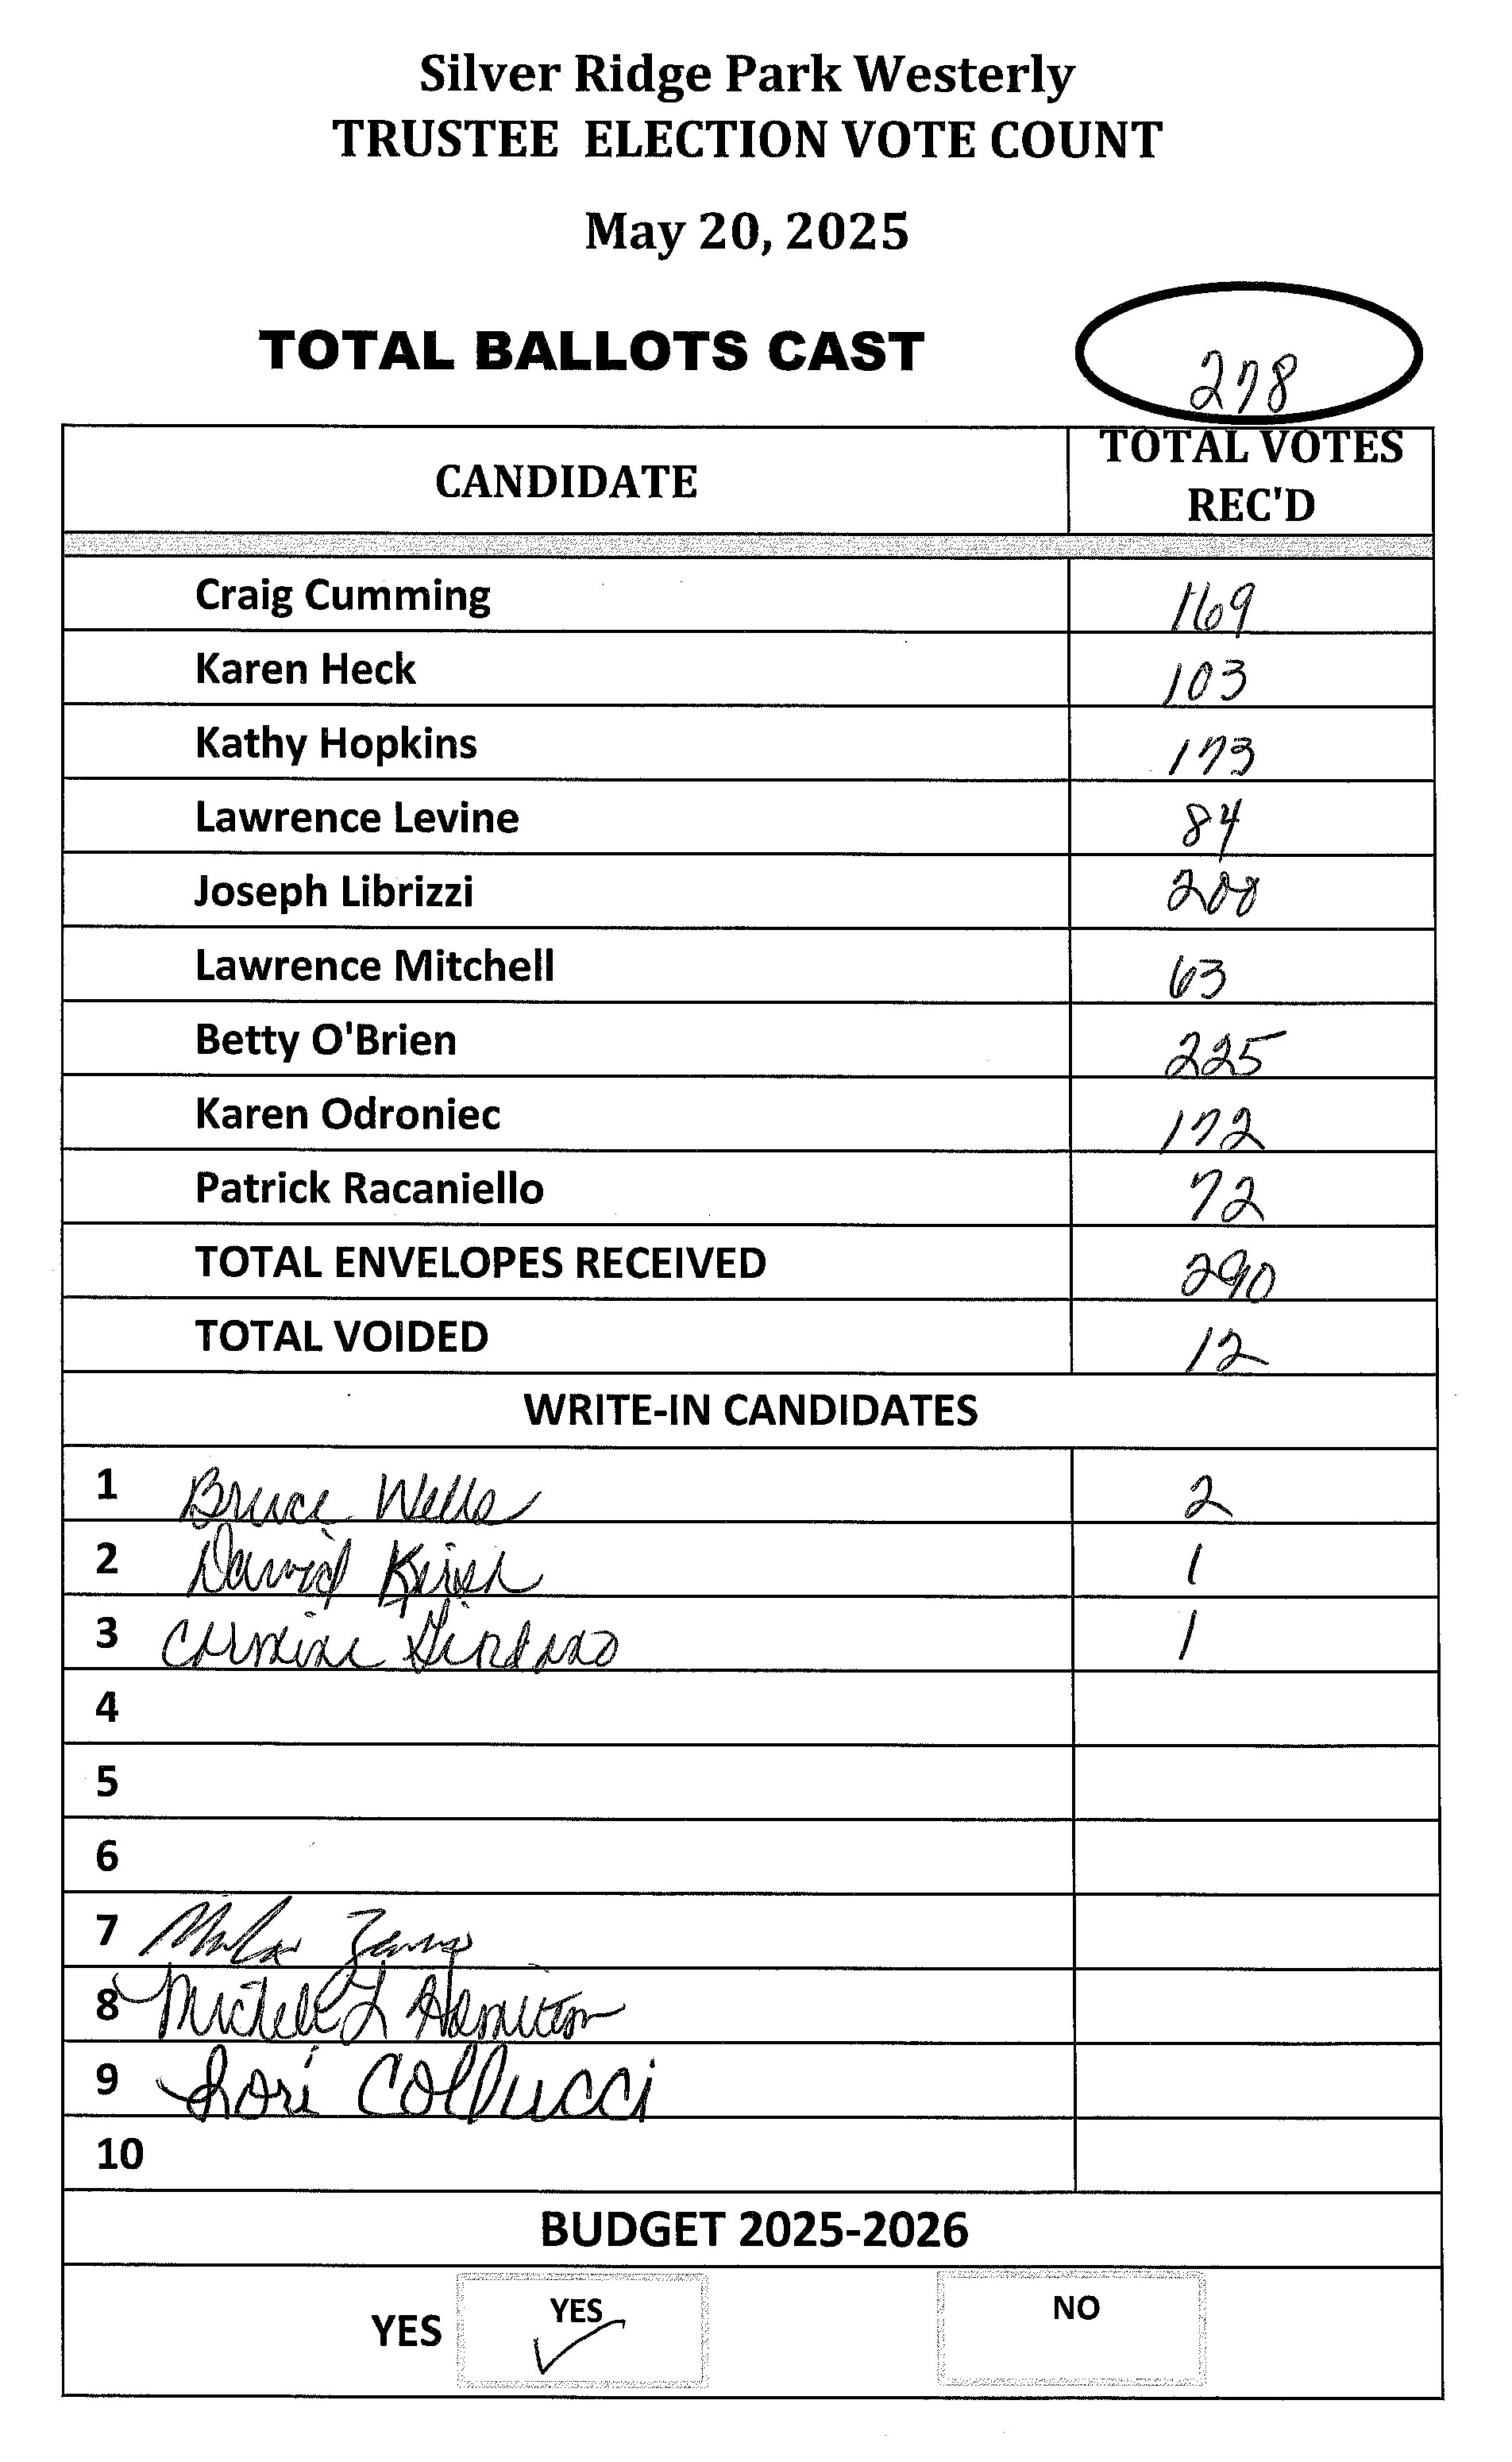 Silver Ridge Park Westerly
TRUSTEE ELECTION VOTE COUNT
May 20, 2025
TOTAL BALLOTS CAST 278
CANDIDATE TOTAL VOTES REC'D
Craig Cumming 169
Karen Heck 103
Kathy Hopkins 173
Lawrence Levine 84
Joseph Librizzi 208
Lawrence Mitchell 63
Betty O'Brien 225
Karen Odroniec 172
Patrick Racaniello 72
TOTAL ENVELOPES RECEIVED 290
TOTAL VOIDED 12
WRITE-IN CANDIDATES
1 Bruce Wells 2
2 David Kirsh 1
3 Carmine Giordano 1
4
5
6
7
8 Michele L Hamilton
9 Lori Colucci
10
BUDGET 2025-2026
YES YES ✓ NO